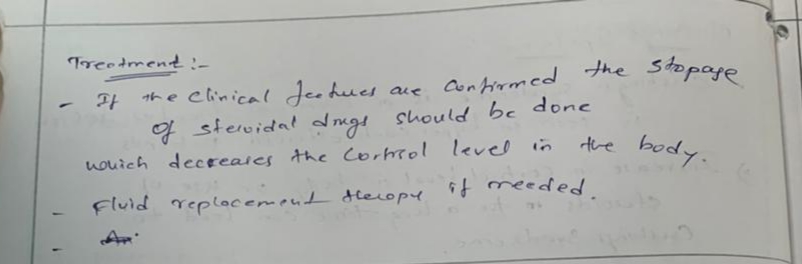 Treatment :-
- If the clinical features are confirmed the stopage
of steroidal drugs should be done
which decreases the Cortisol level in the body.
- Fluid replacement therapy if needed.
-